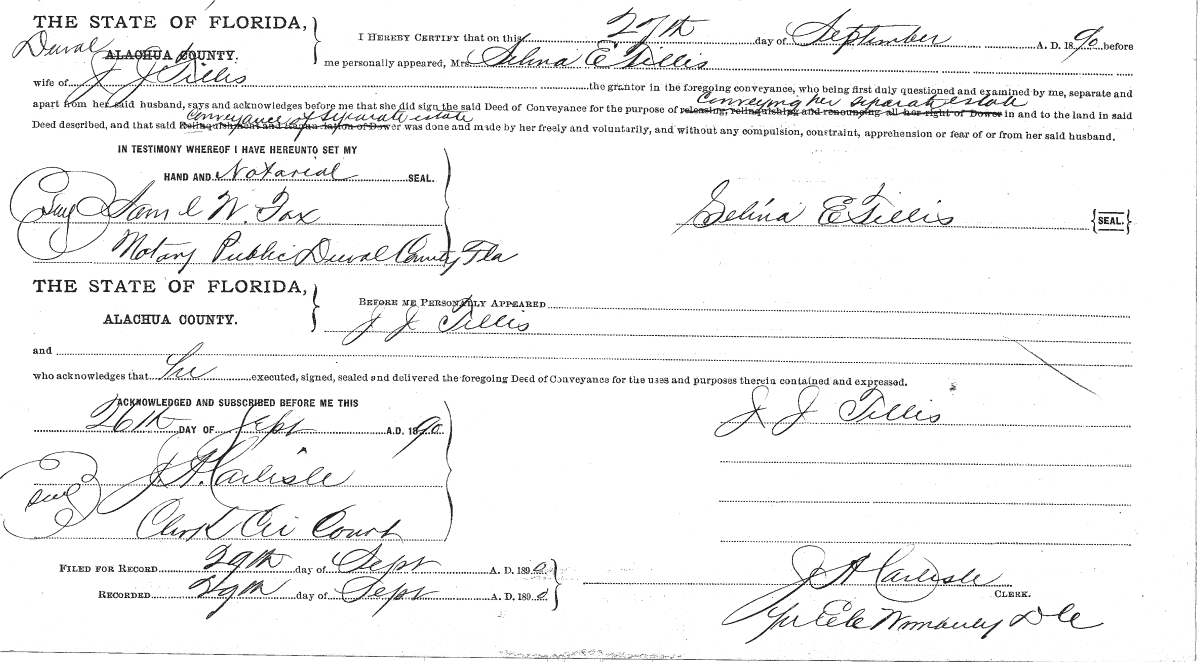 THE STATE OF FLORIDA,
Duval
ALACHUA COUNTY.
I HEREBY CERTIFY that on this 27th day of September A. D. 1890 before
me personally appeared, Mrs. Selina E Tillis
wife of J J Tillis the grantor in the foregoing conveyance, who being first duly questioned and examined by me, separate and
Conveying her separate estate
apart from her said husband, says and acknowledges before me that she did sign the said Deed of Conveyance for the purpose of releasing, relinquishing and renouncing all her right of Dower in and to the land in said
conveyance of separate estate
Deed described, and that said Relinquishment and of Dower was done and made by her freely and voluntarily, and without any compulsion, constraint, apprehension or fear of or from her said husband.
IN TESTIMONY WHEREOF I HAVE HEREUNTO SET MY
HAND AND Notarial SEAL.
Seal Saml W. Fox
Selina E Tillis {SEAL.}
Notary Public Duval County Fla
THE STATE OF FLORIDA,
ALACHUA COUNTY.
BEFORE ME PERSONALLY APPEARED
J J Tillis
and
who acknowledges that he executed, signed, sealed and delivered the foregoing Deed of Conveyance for the uses and purposes therein contained and expressed.
ACKNOWLEDGED AND SUBSCRIBED BEFORE ME THIS
26th DAY OF Sept A.D. 1890
J J Tillis
Seal J.A. Carlisle
Clerk Cir Court
FILED FOR RECORD 29th day of Sept A. D. 1890
RECORDED 29th day of Sept A. D. 1890
J A Carlisle
CLERK.
Wimberly D C